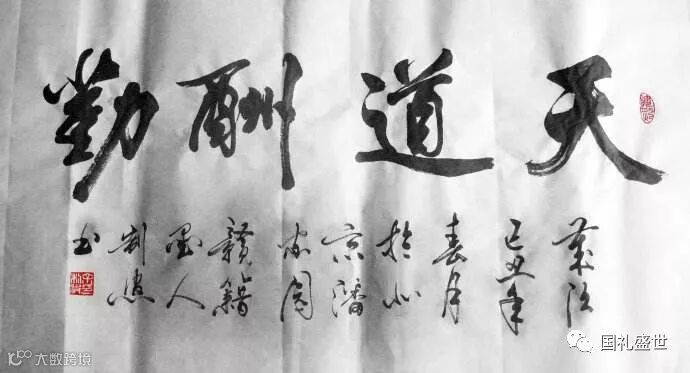 天道酬勤
岁次
己丑年
春月
於北
京潘
家园
赣籍
墨人
书
大数跨境
国礼盛世